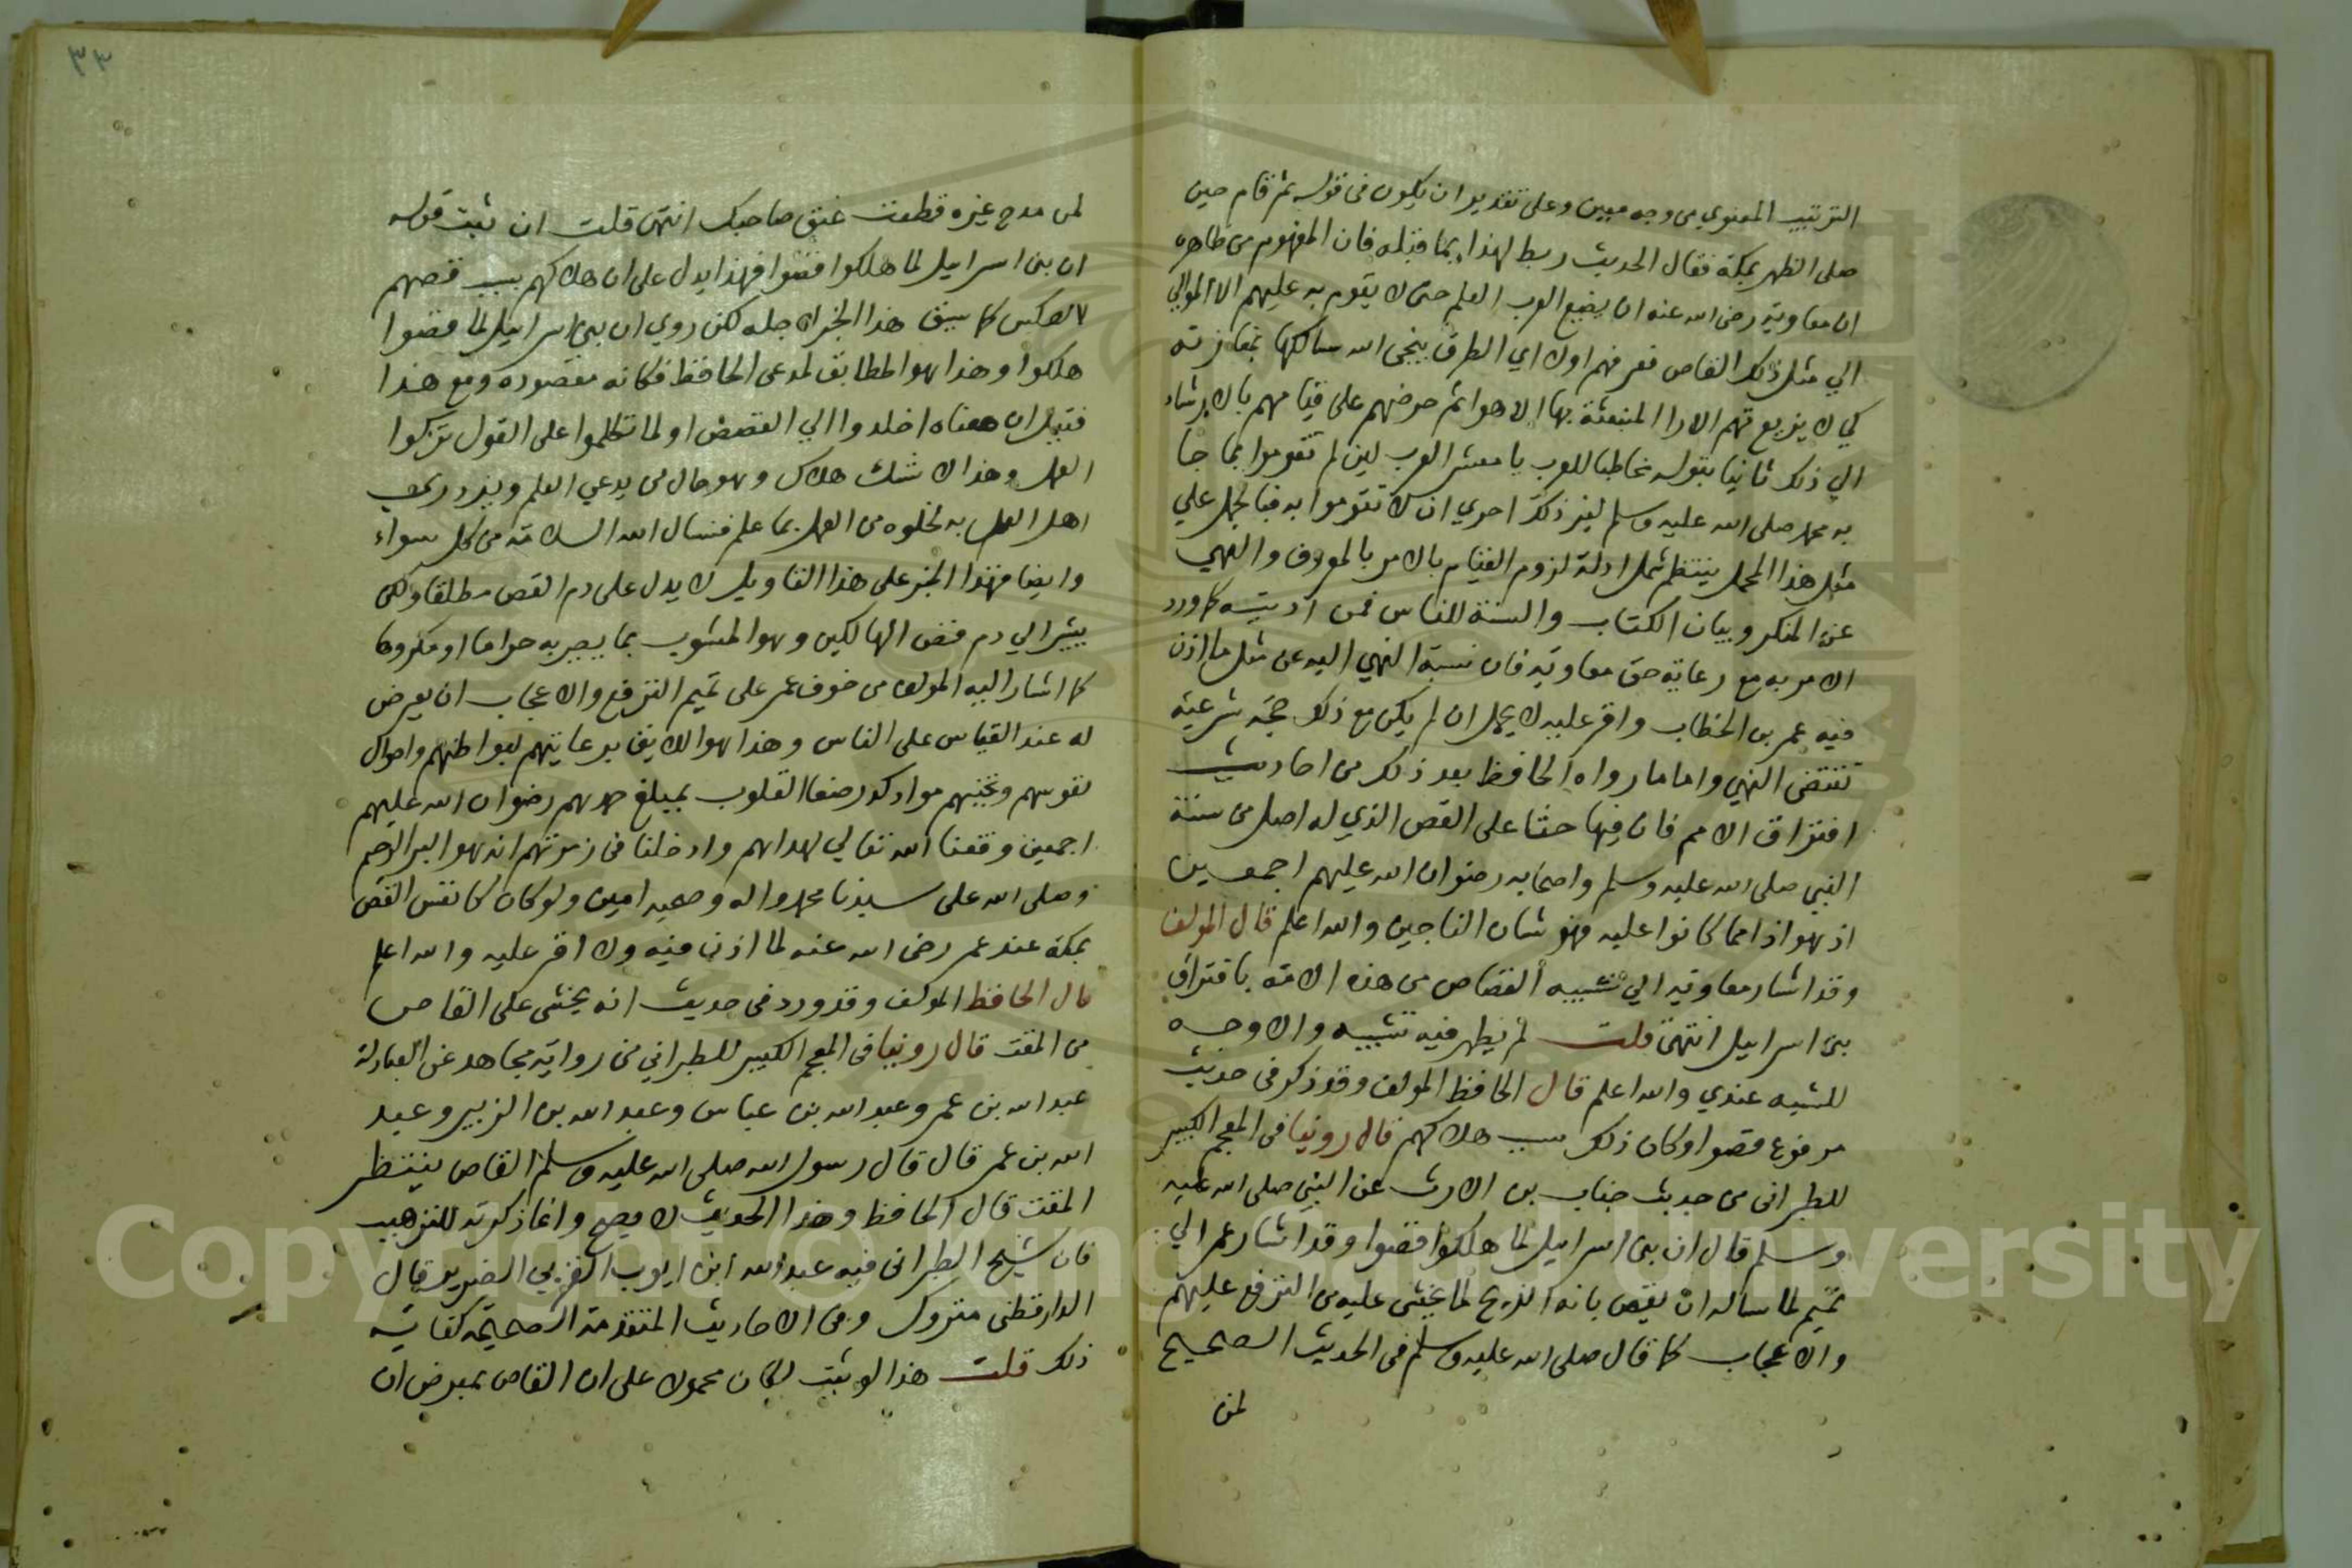 الترتيب المعنوي من وجه معين وعلى تقدير ان يكون في قوله ثم قام حين
صلى الظهر بمكة فقال الحديث ربط لهذا بما قبله فان المفهوم من ظاهره
ان معاوية رضى الله عنه ان يضيع العرب العلم حتى لا يقوم به عليهم الا الموالي
الي مثل ذلك القاص فعرفهم اولا اي الطرق ينجى الله سالكها بمفازته
كي لا يزيع بهم الارا المنبعثة بها الاهوا ثم حرضهم على قيامهم بالارشاد
الي ذلك ثانيا بقوله مخاطبا للعرب يا معشر العرب لين لم تقوموا بما جا
به محمد صلى الله عليه وسلم لغير ذلك احري ان لا تقوموا به فبالحمل علي
مثل هذا المحمل ينتظم شمل ادلة لزوم القيام بالامر بالمعروف والنهي
عن المنكر وبيان الكتاب والسنة للناس فمن كما ورد
الامر به مع رعاية حق معاوية فان نسبة النهي اليه عن مثل ما اذن
فيه عمر بن الخطاب واقر عليه لا يحمل ان لم يكن مع ذلك حجة شرعية
تقتضى النهي واما ما رواه الحافظ بعد ذلك من احاديث
افتراق الامم فان فيها حثا على القص الذي له اصل من سنة
النبي صلى الله عليه وسلم واصحابه رضوان الله عليهم اجمعين
اذ هو اذا مما كانوا عليه فهو شان الناجين والله اعلم قال المولف
وقد اشار معاوية الي تشبيه القصاص من هذه الامة بافتراق
بنى اسرايل انتهى قلت لم يظهر فيه تشبيه والاوجه
للشبه عندي والله اعلم قال الحافظ المولف وقد ذكر في حديث
مرفوع قصوا وكان ذلك سبب هلاكهم قال روينا في المعجم الكبير
للطبرانى من حديث خباب بن الارث عن النبي صلى الله عليه
وسلم قال ان بنى اسرايل لما هلكوا قصوا وقد اشار عمر الي
تميم لما ساله ان يقص بانه الذبح لما يخشى عليه من الترفع عليهم
والاعجاب كما قال صلى الله عليه وسلم في الحديث الصحيح
لمن
٣٣
لمن مدح غيره قطعت عنق صاحبك انتهى قلت ان ثبت قوله
ان بنى اسرايل لما هلكوا قصوا فهذا يدل على ان هلاكهم سبب قصهم
لا العكس كما سيق هذا الخبر لاجله لكن روي ان بنى اسرايل لما قصوا
هلكوا وهذا هو المطابق لمدعى الحافظ فكانه مقصوده ومع هذا
فقيل ان معناه اخلدوا الي القصص او لما تكلموا على القول تركوا
العمل وهذا لا شك هلاك وهو حال من يدعي العلم ويزدري
اهل العمل به لخلوه من العمل بما علم فنسال الله السلامة من كل سواء
وايضا فهذا الخبر على هذا التاويل لا يدل على ذم القص مطلقا ولكن
يشير الي ذم قصص الهالكين وهو المشوب بما يصير به حراما او مكروها
كما اشار اليه المولف من خوف عمر على تميم الترفع والاعجاب ان يعرض
له عند القياس على الناس وهذا هو اللايق برعايتهم لبواطنهم واحوال
نفوسهم وتجنبهم مواد كدر صفا القلوب بمبلغ جهدهم رضوان الله عليهم
اجمعين وفقنا الله تعالي لهداهم وادخلنا في زمرتهم انه هو البر الرحيم
وصلى الله على سيدنا محمد واله وصحبه امين ولو كان نفس القص
بمكة عند عمر رضى الله عنه لما اذن فيه ولا اقر عليه والله اعلم
قال الحافظ المولف وقد ورد في حديث انه يخشى على القاص
من المقت قال روينا في المعجم الكبير للطبراني من رواية مجاهد عن العبادلة
عبد الله بن عمر وعبد الله بن عباس وعبد الله بن الزبير وعبد
الله بن عمر قال قال رسول الله صلى الله عليه وسلم القاص ينتظر
المقت قال الحافظ وهذا الحديث لا يصح وانما ذكرته للترهيب
فان شيخ الطبرانى فيه عبد الله ابن ايوب القربي الضرير قال
الدارقطنى متروك وفى الاحاديث المتقدمة الصحيحة كفاية
ذلك قلت هذا لو ثبت لكان محمولا على ان القاص بمعرض ان
Copyright © King Saud University